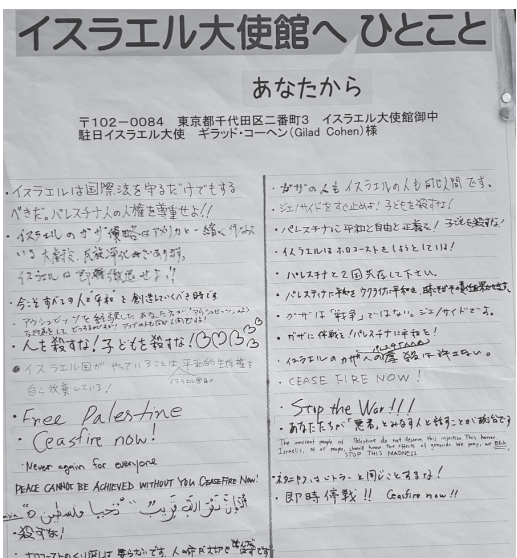 イスラエル大使館へ ひとこと
あなたから
〒102-0084 東京都千代田区二番町3 イスラエル大使館御中
駐日イスラエル大使 ギラッド・コーヘン(Gilad Cohen)様
・イスラエルは国際法を守るだけでもする
べきだ。パレスチナ人の人権を尊重せよ!!
・イスラエルのガザ
いる大虐殺、民族浄化であります。
イスラエルは即時撤退せよ!!
・今こそすべての人で平和を創造していくべき時です
・人を殺すな!子どもを殺すな!
・イスラエル国がやっていることは
自ら放棄している!
・Free Palestine
・Ceasfire now!
・Never again for everyone
PEACE CANNOT BE ACHIEVED WITHOUT YOU CEASEFIRE NOW!
・殺すな!
・ホロコーストのくり返しは要らないです。人の命が大切で
・ガザの人もイスラエルの人も同じ人間です。
・ジェノサイドをすぐ止めよ!子どもを殺すな!
・パレスチナに平和と自由と正義を!子どもを殺すな!
・イスラエルはホロコーストをしようとしている!
・パレスチナと2国共存して下さい。
・パレスティナに平和を ウクライナに平和を
・ガザは「戦争」ではない。ジェノサイドでよ。
・ガザに休戦を!パレスチナに平和を!
・イスラエルのガザへの 虐殺は許さない。
・CEASE FIRE NOW!
・Stop the War!!!
・あなたたちが「悪者」とみなす人と話すことが政治です
The innocent people of Palestine do not deserve this injustice. This horror
Israelis, of all people, should know the effects of genocide. We pray, we BEG,
STOP THIS MADNESS
・ネタニヤフはヒトラーと同じことするな!
・即時停戦!! Ceasfire now!!